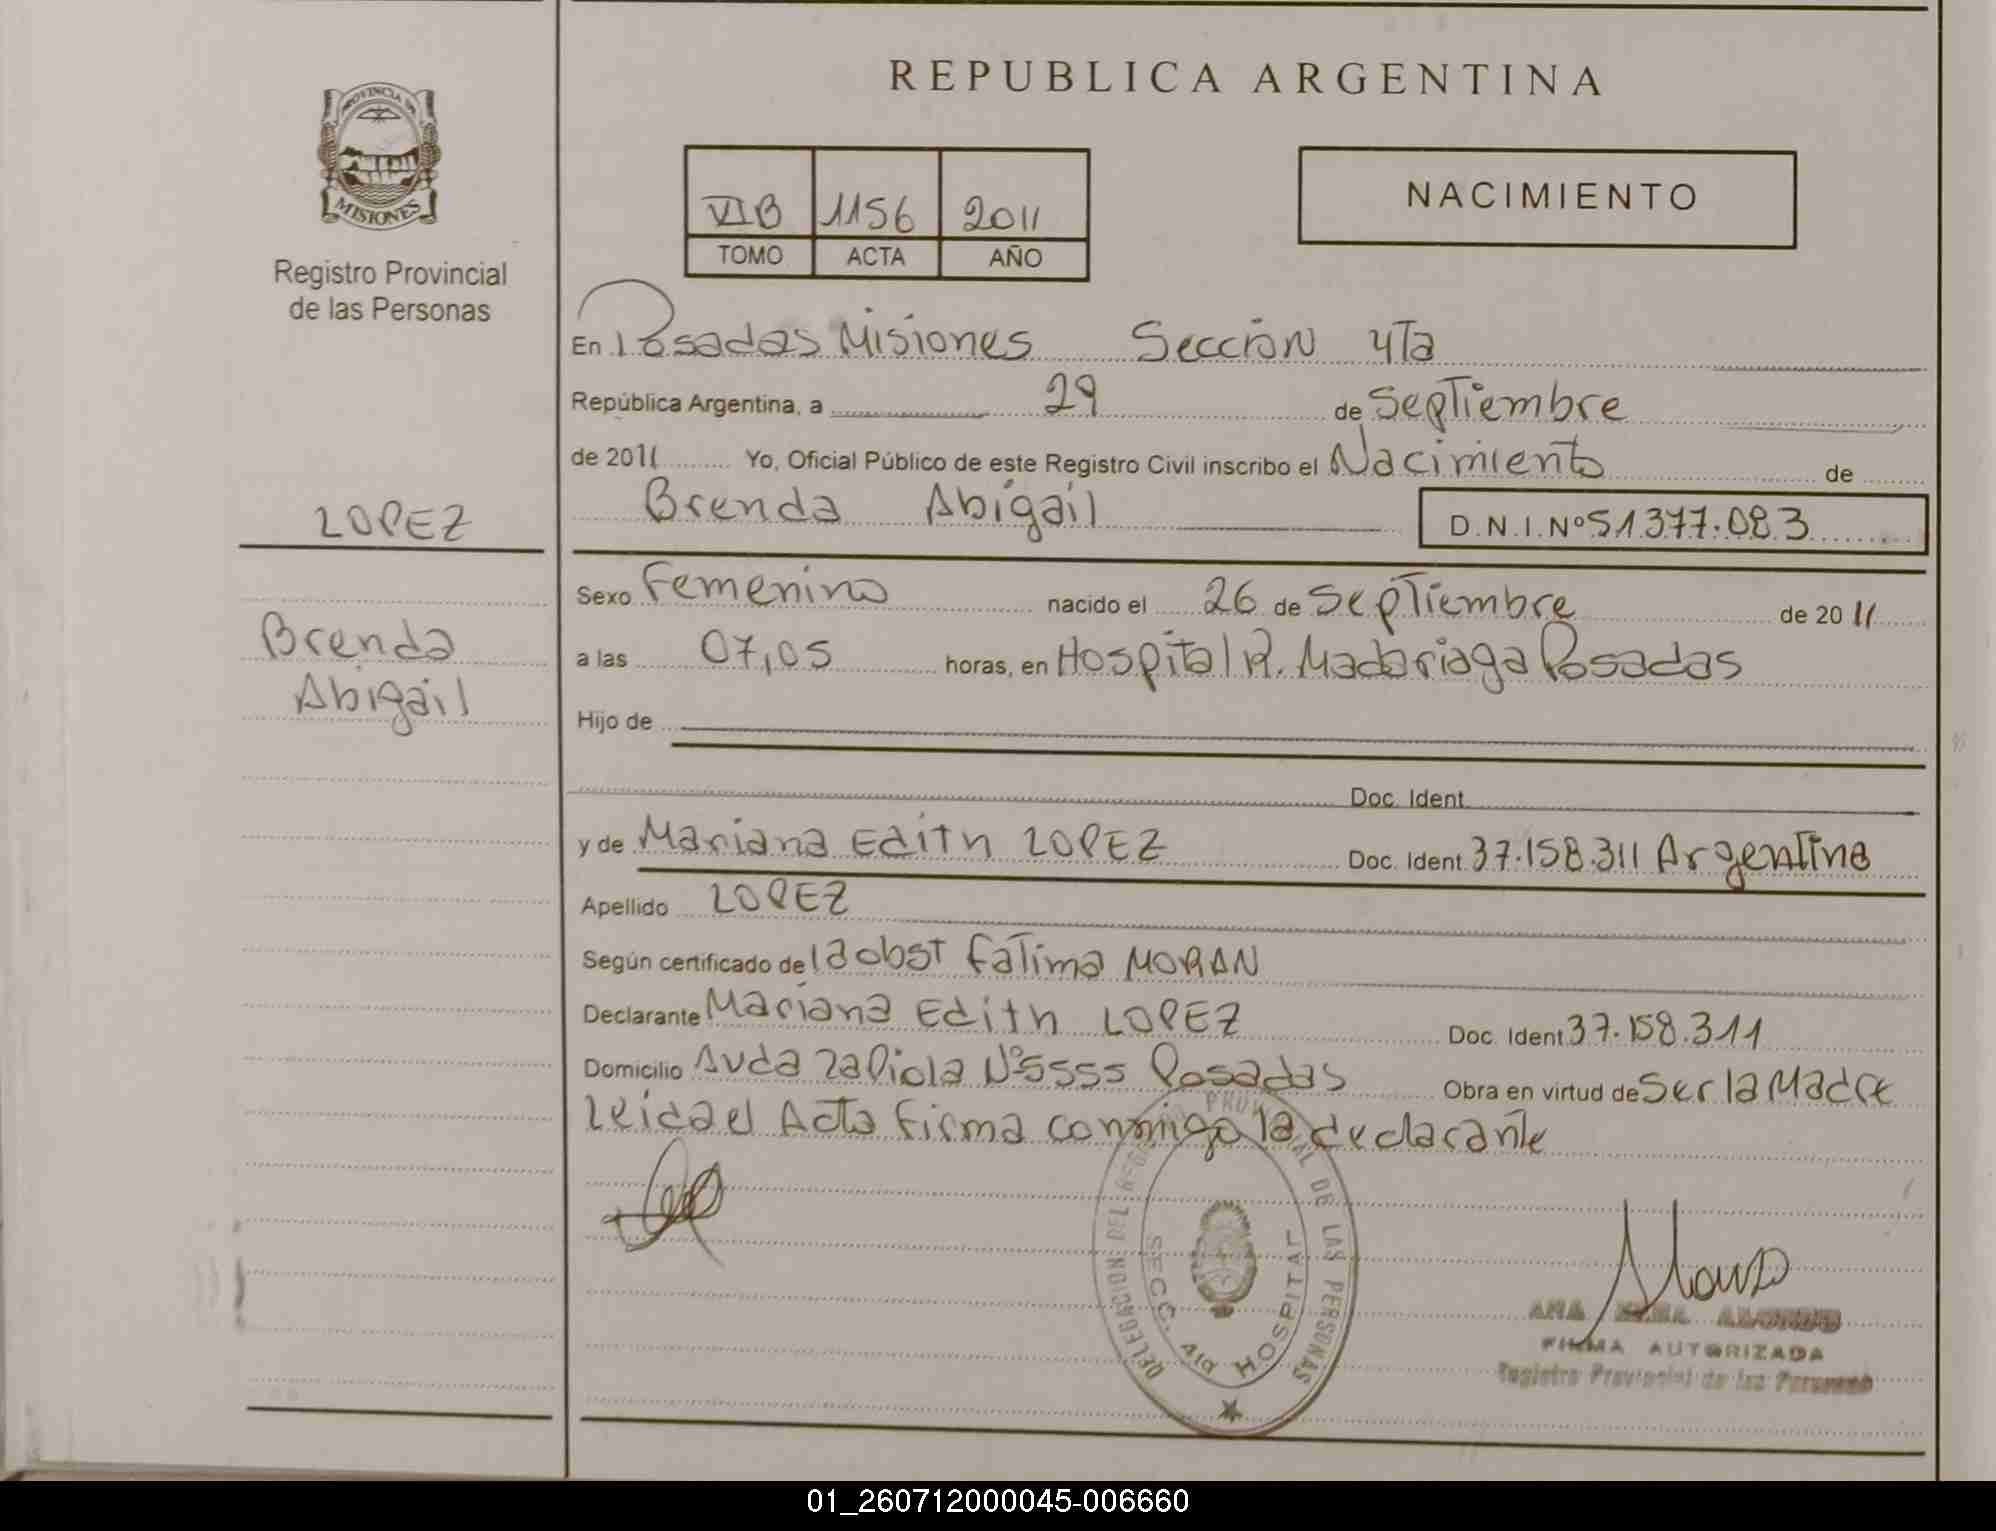 REPUBLICA ARGENTINA
PROVINCIA DE
MISIONES
Registro Provincial
de las Personas
VIB 1156 2011
TOMO ACTA AÑO
NACIMIENTO
En Posadas Misiones Sección 4Ta
República Argentina, a 29 de Septiembre
de 2011 Yo, Oficial Público de este Registro Civil inscribo el Nacimiento de
Brenda Abigail D.N.I.Nº 51.377.083
LOPEZ
Brenda
Abigail
Sexo Femenino nacido el 26 de Septiembre de 2011
a las 07,05 horas, en Hospital R. Madariaga Posadas
Hijo de
Doc. Ident.
y de Mariana Edith LOPEZ Doc. Ident. 37.158.311 Argentina
Apellido LOPEZ
Según certificado de la obst Fatima MORAN
Declarante Mariana Edith LOPEZ Doc. Ident 37.158.311
Domicilio Avda Zapiola Nº5555 Posadas Obra en virtud de Ser la Madre
Leida el Acta Firma conmigo la declarante
DELEGACION DEL REGISTRO PROVINCIAL DE LAS PERSONAS
SECC. 4ta HOSPITAL
ANA
FIRMA AUTORIZADA
Registro Provincial de las Personas
01_260712000045-006660